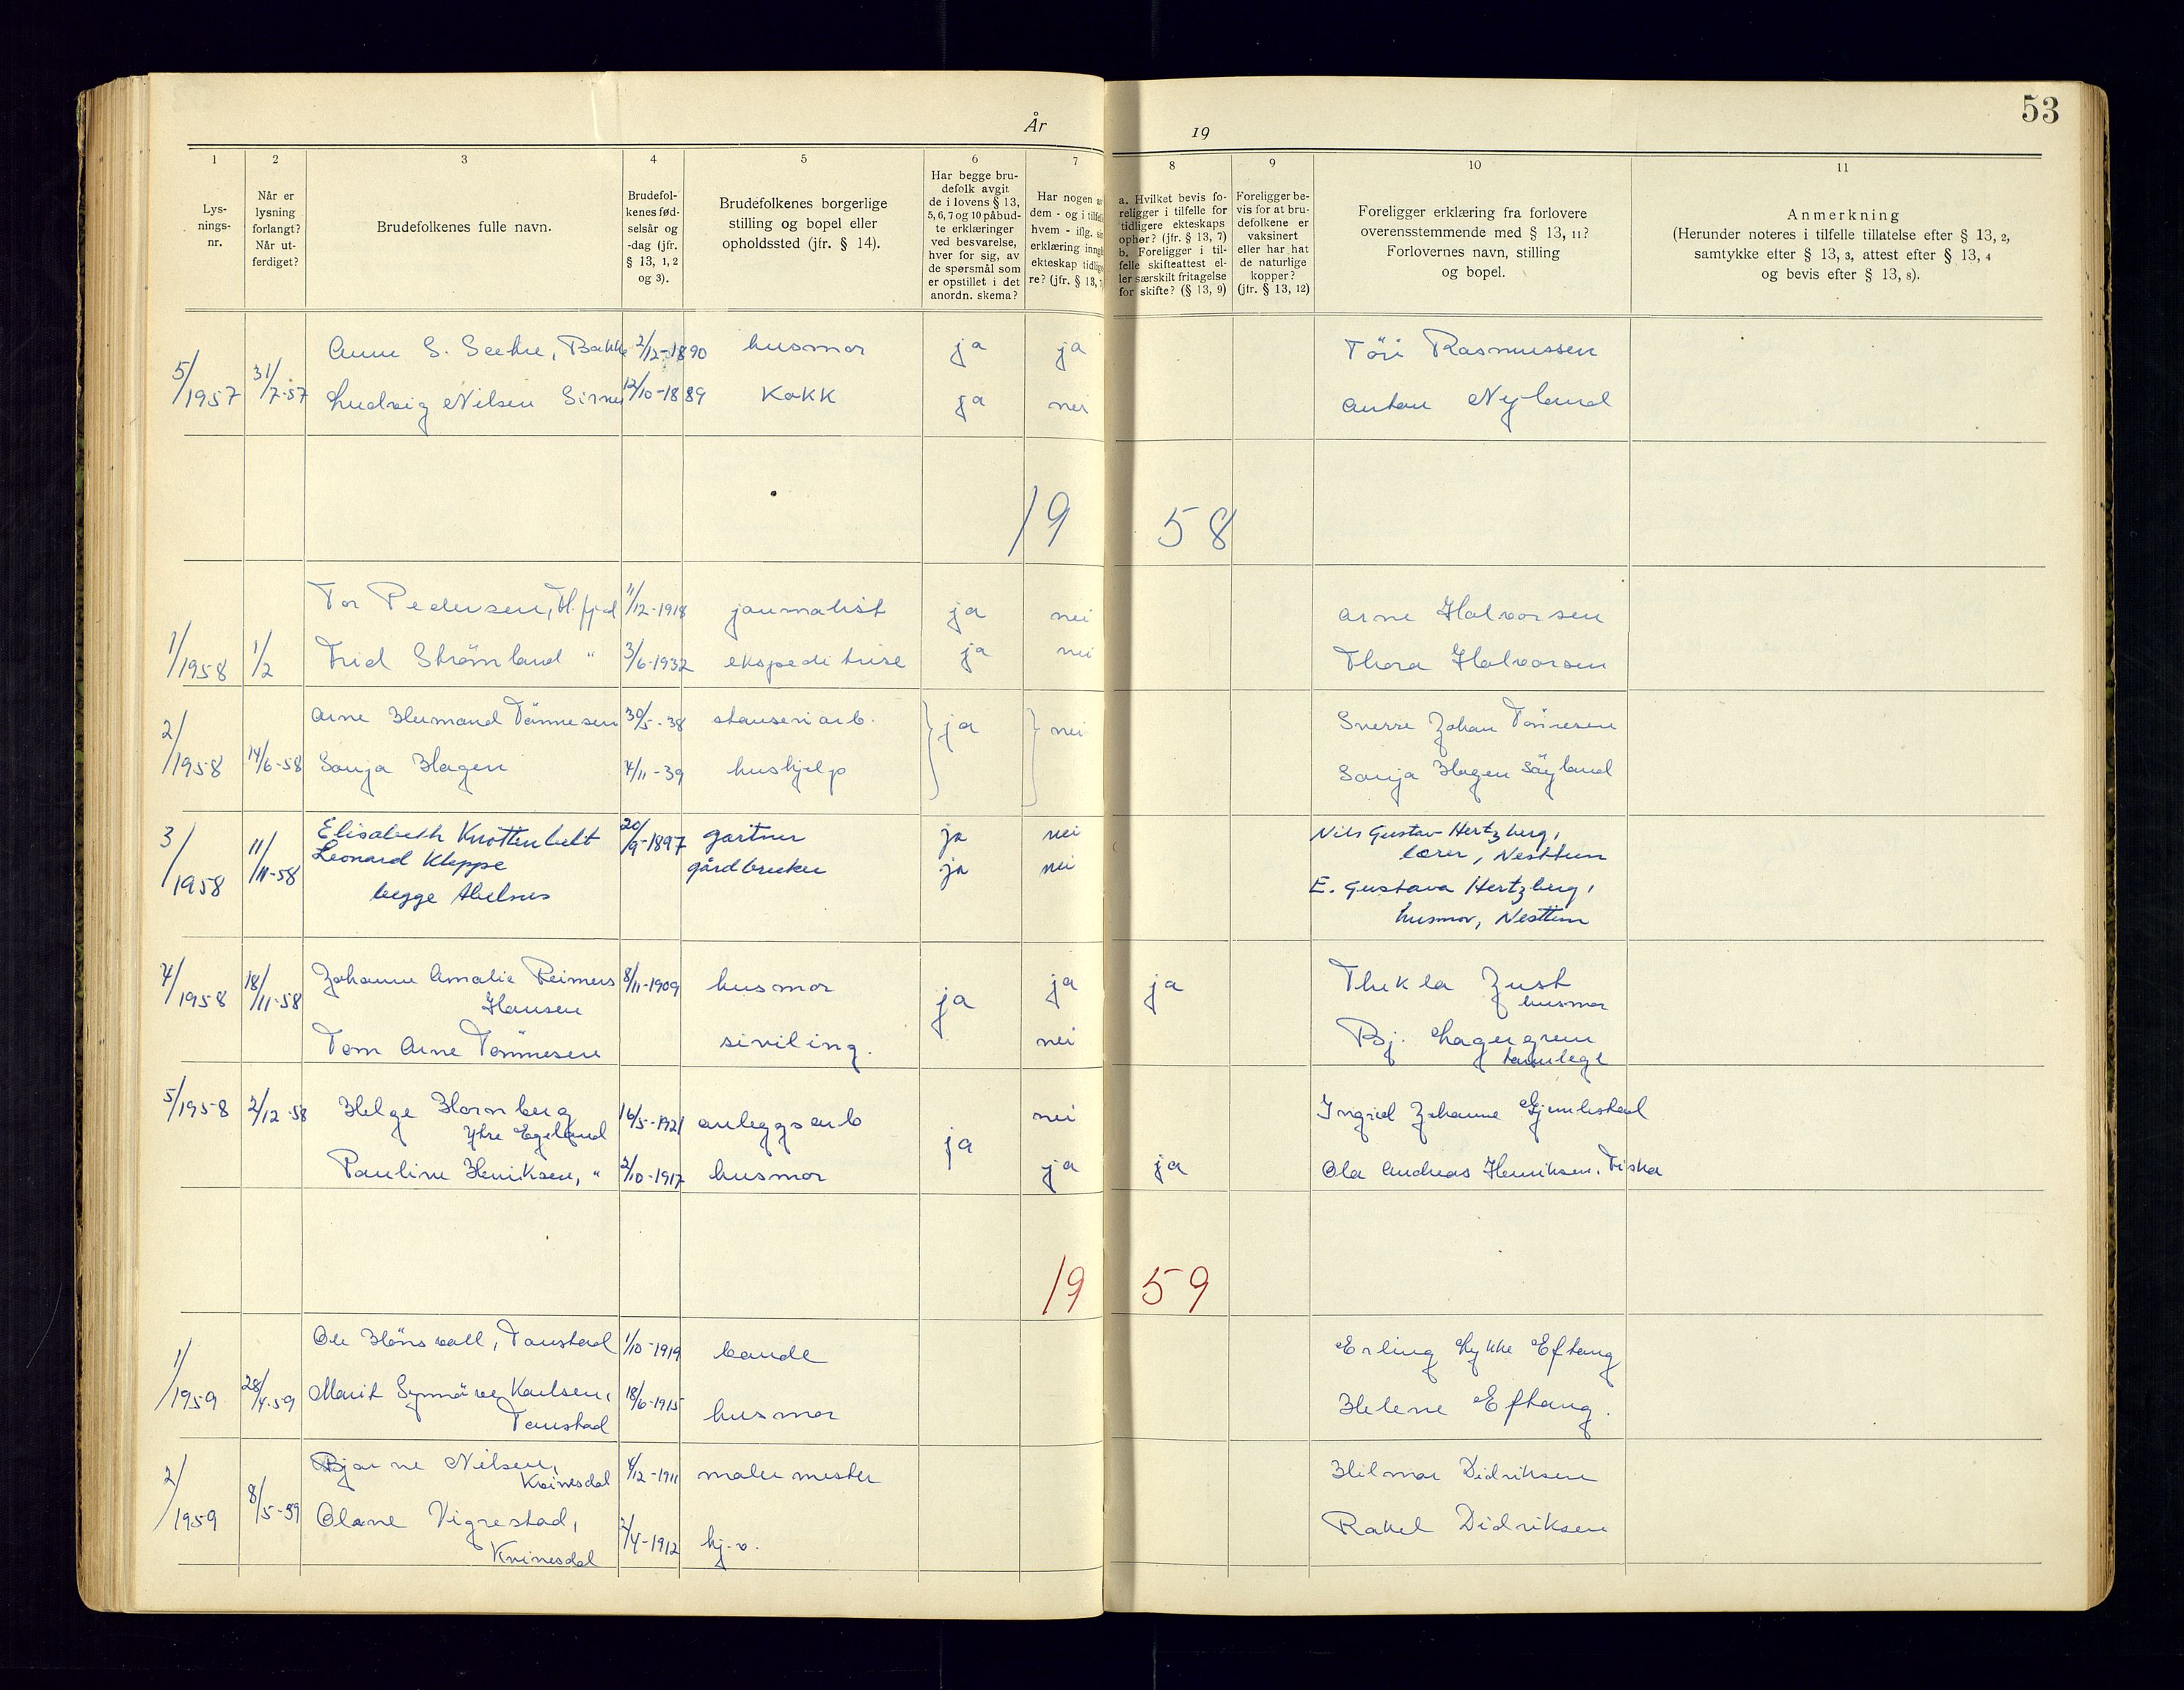 År 19
53
1 2 3 4 5 6 7 8 9 10 11
Lys-
nings-
nr.
Når er
lysning
forlangt?
Når ut-
ferdiget?
Brudefolkenes fulle navn.
Brudefol-
kenes fød-
selsår og
-dag (jfr.
§ 13, 1, 2
og 3).
Brudefolkenes borgerlige
stilling og bopel eller
opholdssted (jfr. § 14).
Har begge bru-
defolk avgit
de i lovens § 13,
5, 6, 7 og 10 påbud-
te erklæringer
ved besvarelse,
hver for sig, av
de spørsmål som
er opstillet i det
anordn. skema?
Har nogen av
dem - og i tilfelle
hvem - iflg. sin
erklæring inngå
ekteskap tidlige-
re? (jfr. § 13,
a. Hvilket bevis fo-
religger i tilfelle for
tidligere ekteskaps
ophør? (jfr. § 13, 7)
b. Foreligger i til-
felle skifteattest el-
ler særskilt fritagelse
for skifte? (§ 13, 9)
Foreligger be-
vis for at bru-
defolkene er
vaksinert
eller har hat
de naturlige
kopper?
(jfr. § 13, 12)
Foreligger erklæring fra forlovere
overensstemmende med § 13, 11?
Forlovernes navn, stilling
og bopel.
Anmerkning
(Herunder noteres i tilfelle tillatelse efter § 13, 2,
samtykke efter § 13, 3, attest efter § 13, 4
og bevis efter § 13, 8).
5/1957 31/7-57 Anne S. Seehu, Bakke 2/12-1890 husmor ja ja Töri Rasmussen
Ludvig Nilsen Sirnes 12/10-1889 Kokk ja nei Anton Nyland
19 58
1/1958 1/2 Tor Pedersen, Fl. fjord 11/12-1918 journalist ja nei Arne Halvorsen
Frid Strömland " 3/6-1932 ekspeditrise ja nei Thora Halvorsen
2/1958 14/6-58 Arne Hermand Tönnesen 30/5-38 stanseriarb. ja nei Sverre Johan Tönnesen
Sonja Hagen 4/11-39 hushjelp Sonja Hagen Säyland
3/1958 11/11-58 Elisabeth Knottenbelt 20/9-1897 gartner ja nei Nils Gustav Hertzberg,
lærer, Nesttun
Leonard Kleppe gårdbruker ja nei
begge Abelsnes
E. Gustava Hertzberg,
husmor, Nesttun
4/1958 18/11-58 Johanne Amalie Reimers 8/11-1909 husmor ja ja ja Thekla Just
Hansen husmor
Tom Arne Tönnesen siviling. nei Bj. Lagergren
tannlege
5/1958 2/12-58 Helge Hornberg 16/5-1921 anleggsarb ja nei Ingrid Johanne Gjemlestad
Ytre Egeland
Pauline Henriksen, " 2/10-1917 husmor ja ja Ola Andreas Henriksen, Fiskå
19 59
1/1959 28/4-59 Ole Hönsvall, Tonstad 1/10-1919 bonde Erling Lykke Eftang
Marit Synnöve Karlsen, 18/6-1915 husmor Helene Eftang.
Tonstad
2/1959 8/5-59 Bjarne Nilsen, 4/12-1911 malermester Hilmar Didriksen
Kvinesdal
Olane Vigrestad, 2/4-1912 hj.v. Rakel Didriksen
Kvinesdal